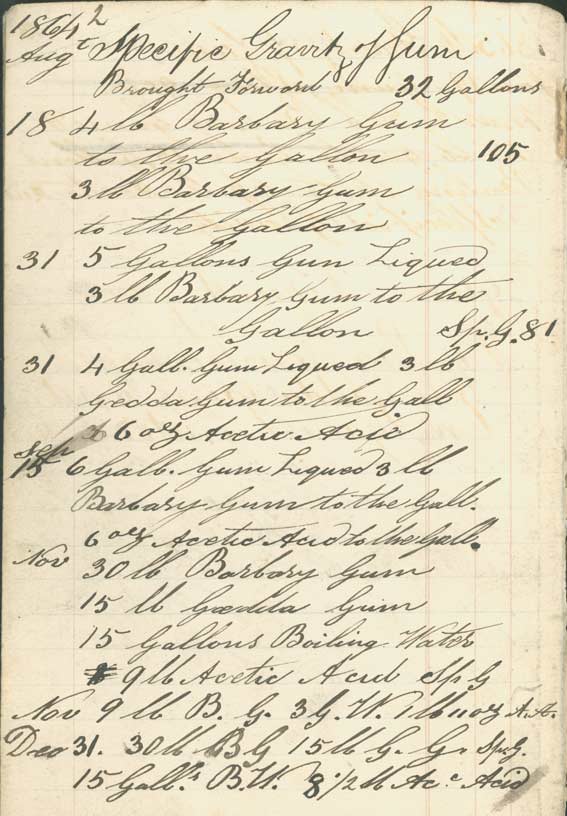 1864 2
Augt Specific Gravity of Gum
Brought Forward 32 Gallons
18 4 lb Barbary Gum
to the Gallon 105
3 lb Barbary Gum
to the Gallon
31 5 Gallons Gun Liqued
3 lb Barbary Gum to the
Gallon Sp. G. 81
31 4 Gall. Gum Liqued 3 lb
Gedda Gum to the Gall
6 ozs Acetic Acid
Sep
15 6 Gall. Gum Liqued 3 lb
Barbary Gum to the Gall.
6 ozs Acetic Acid to the Gall.
Nov 30 lb Barbary Gum
15 lb Gedda Gum
15 Gallons Boiling Water
9 lb Acetic Acid Sp G
Nov 9 lb B. G. 3 G. W. 1 lb 11 oz A. A.
Dec 31. 30 lb B G 15 lb G. G. Sp. G.
15 Galls B. W. 8 1/2 lb Ac. Acid